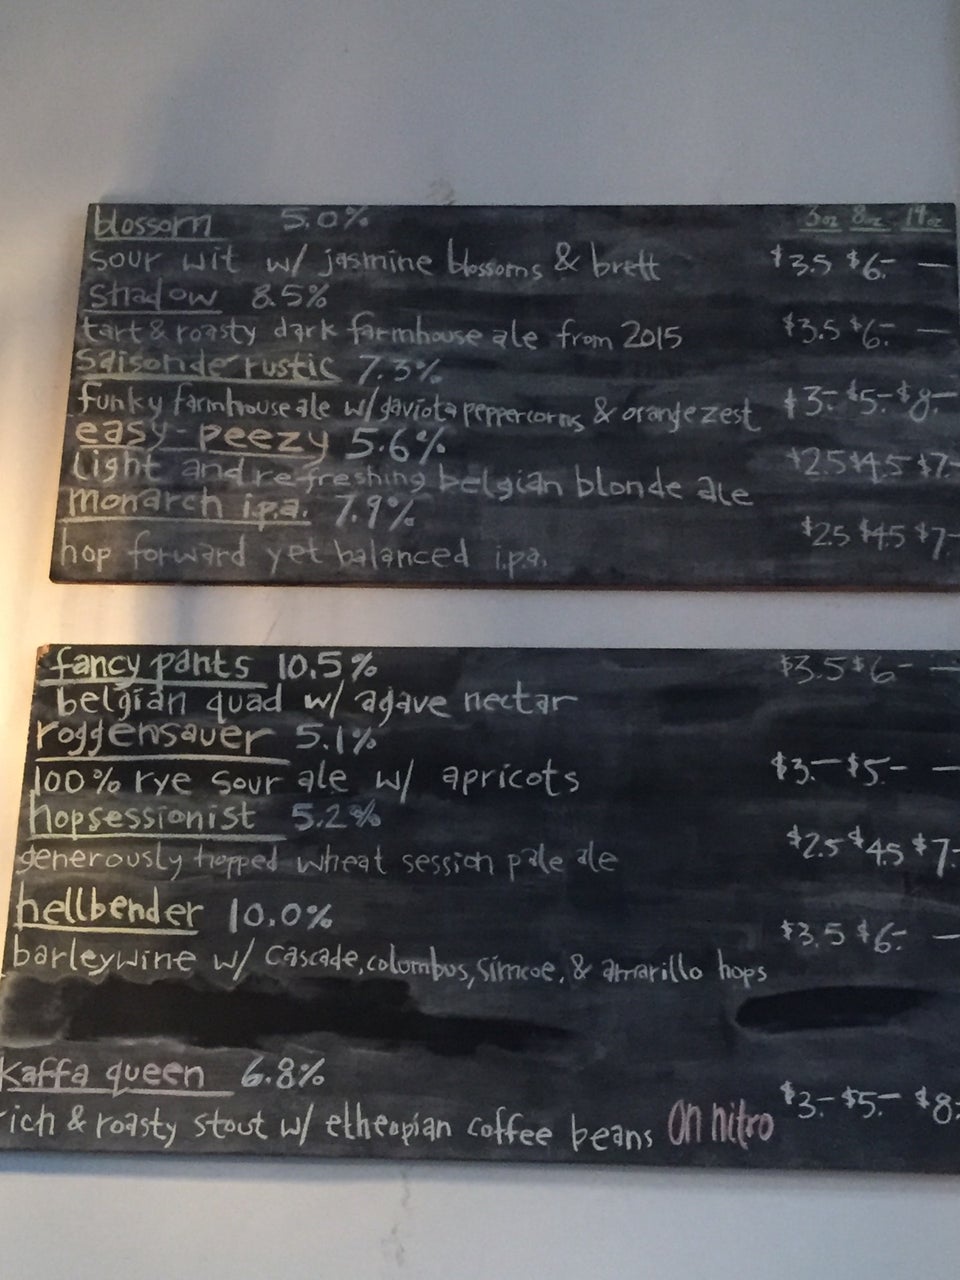 blossom 5.0% 3oz 8oz 14oz
sour wit w/ jasmine blossoms & brett $3.5 $6- —
shadow 8.5%
tart & roasty dark farmhouse ale from 2015 $3.5 $6- —
saison de rustic 7.3%
funky farmhouse ale w/ gaviota peppercorns & orange zest $3- $5- $8-
easy-peezy 5.6%
light and refreshing belgian blonde ale $2.5 $4.5 $7-
monarch i.p.a. 7.9%
hop forward yet balanced i.p.a. $2.5 $4.5 $7-
fancy pants 10.5% $3.5 $6- —
belgian quad w/ agave nectar
roggensauer 5.1%
100% rye sour ale w/ apricots $3- $5- —
hopsessionist 5.2%
generously hopped wheat session pale ale $2.5 $4.5 $7-
hellbender 10.0% $3.5 $6- —
barleywine w/ cascade, columbus, simcoe, & amarillo hops
kaffa queen 6.8%
rich & roasty stout w/ etheopian coffee beans on nitro $3- $5- $8-